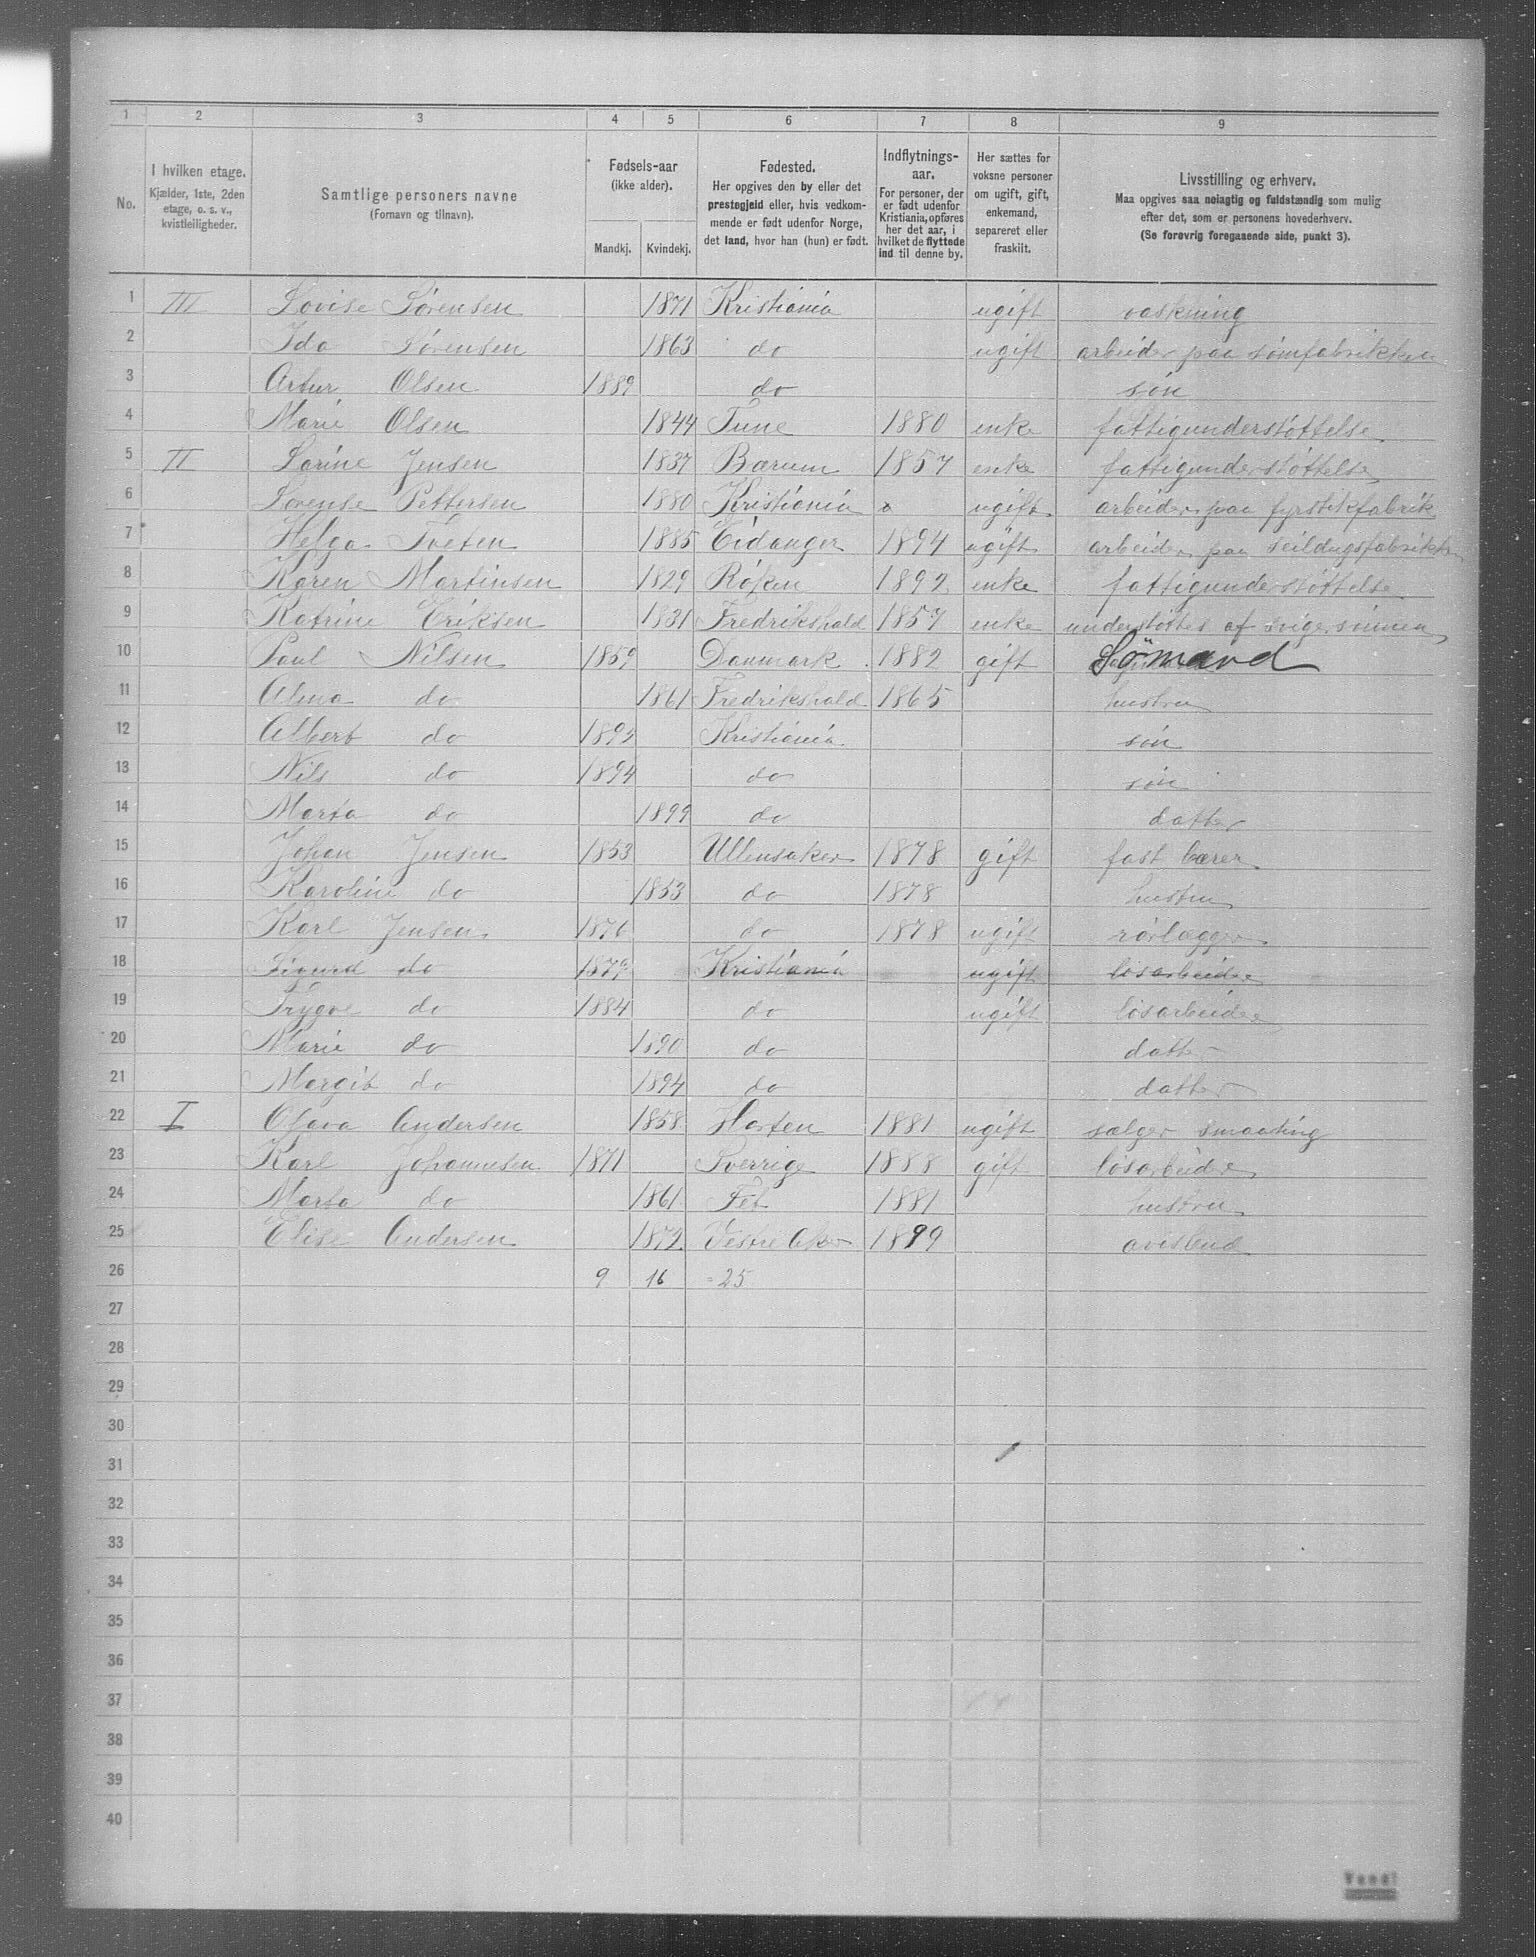 1 2 3 4 5 6 7 8 9
No. I hvilken etage. Kjælder, 1ste, 2den etage, o. s. v., kvistleiligheder. Samtlige personers navne (Fornavn og tilnavn). Fødsels-aar (ikke alder). Mandkj. Kvindekj. Fødested. Her opgives den by eller det prestegjeld eller, hvis vedkommende er født udenfor Norge, det land, hvor han (hun) er født. Indflytnings-aar. For personer, der er født udenfor Kristiania, opføres her det aar, i hvilket de flyttede ind til denne by. Her sættes for voksne personer om ugift, gift, enkemand, separeret eller fraskilt. Livsstilling og erhverv. Maa opgives saa nøiagtig og fuldstændig som mulig efter det, som er personens hovederhverv. (Se forøvrig foregaaende side, punkt 3).
1 III Lovise Sørensen 1871 Kristiania ugift vaskning
2 Ida Sørensen 1863 do ugift arbeider paa sømfabrikken
3 Artur Olsen 1889 do søn
4 Marie Olsen 1844 Tune 1880 enke fattigunderstøttelse
5 II Larine Jensen 1837 Bærum 1857 enke fattigunderstøttelse
6 Lorense Pettersen 1880 Kristiania ugift arbeider paa fyrstikfabrik
7 Helga Tveten 1885 Eidanger 1894 ugift arbeider paa seildugsfabrikk
8 Karen Martinsen 1829 Røken 1892 enke fattigunderstøttelse
9 Katrine Eriksen 1831 Fredrikshald 1857 enke understøttes af svigersønnen
10 Paul Nilsen 1859 Danmark 1882 gift Sømand
11 Alma do 1861 Fredrikshald 1865 hustru
12 Albert do 1892 Kristiania søn
13 Nils do 1894 do søn
14 Marta do 1899 do datter
15 Johan Jensen 1853 Ullensaker 1878 gift fast bærer
16 Karoline do 1853 do 1878 hustru
17 Karl Jensen 1876 do 1878 ugift rørlægger
18 Sigurd do 1879 Kristiania ugift løsarbeider
19 Trygve do 1884 do ugift løsarbeider
20 Marie do 1890 do datter
21 Margit do 1894 do datter
22 I Olava Andersen 1858 Horten 1881 ugift sælger smaating
23 Karl Johannesen 1871 Sverrige 1888 gift løsarbeider
24 Marta do 1861 Fet 1881 hustru
25 Elise Andersen 1872 Vestre Aker 1899 avisbud
26 9 16 = 25
27
28
29
30
31
32
33
34
35
36
37
38
39
40
Vend!